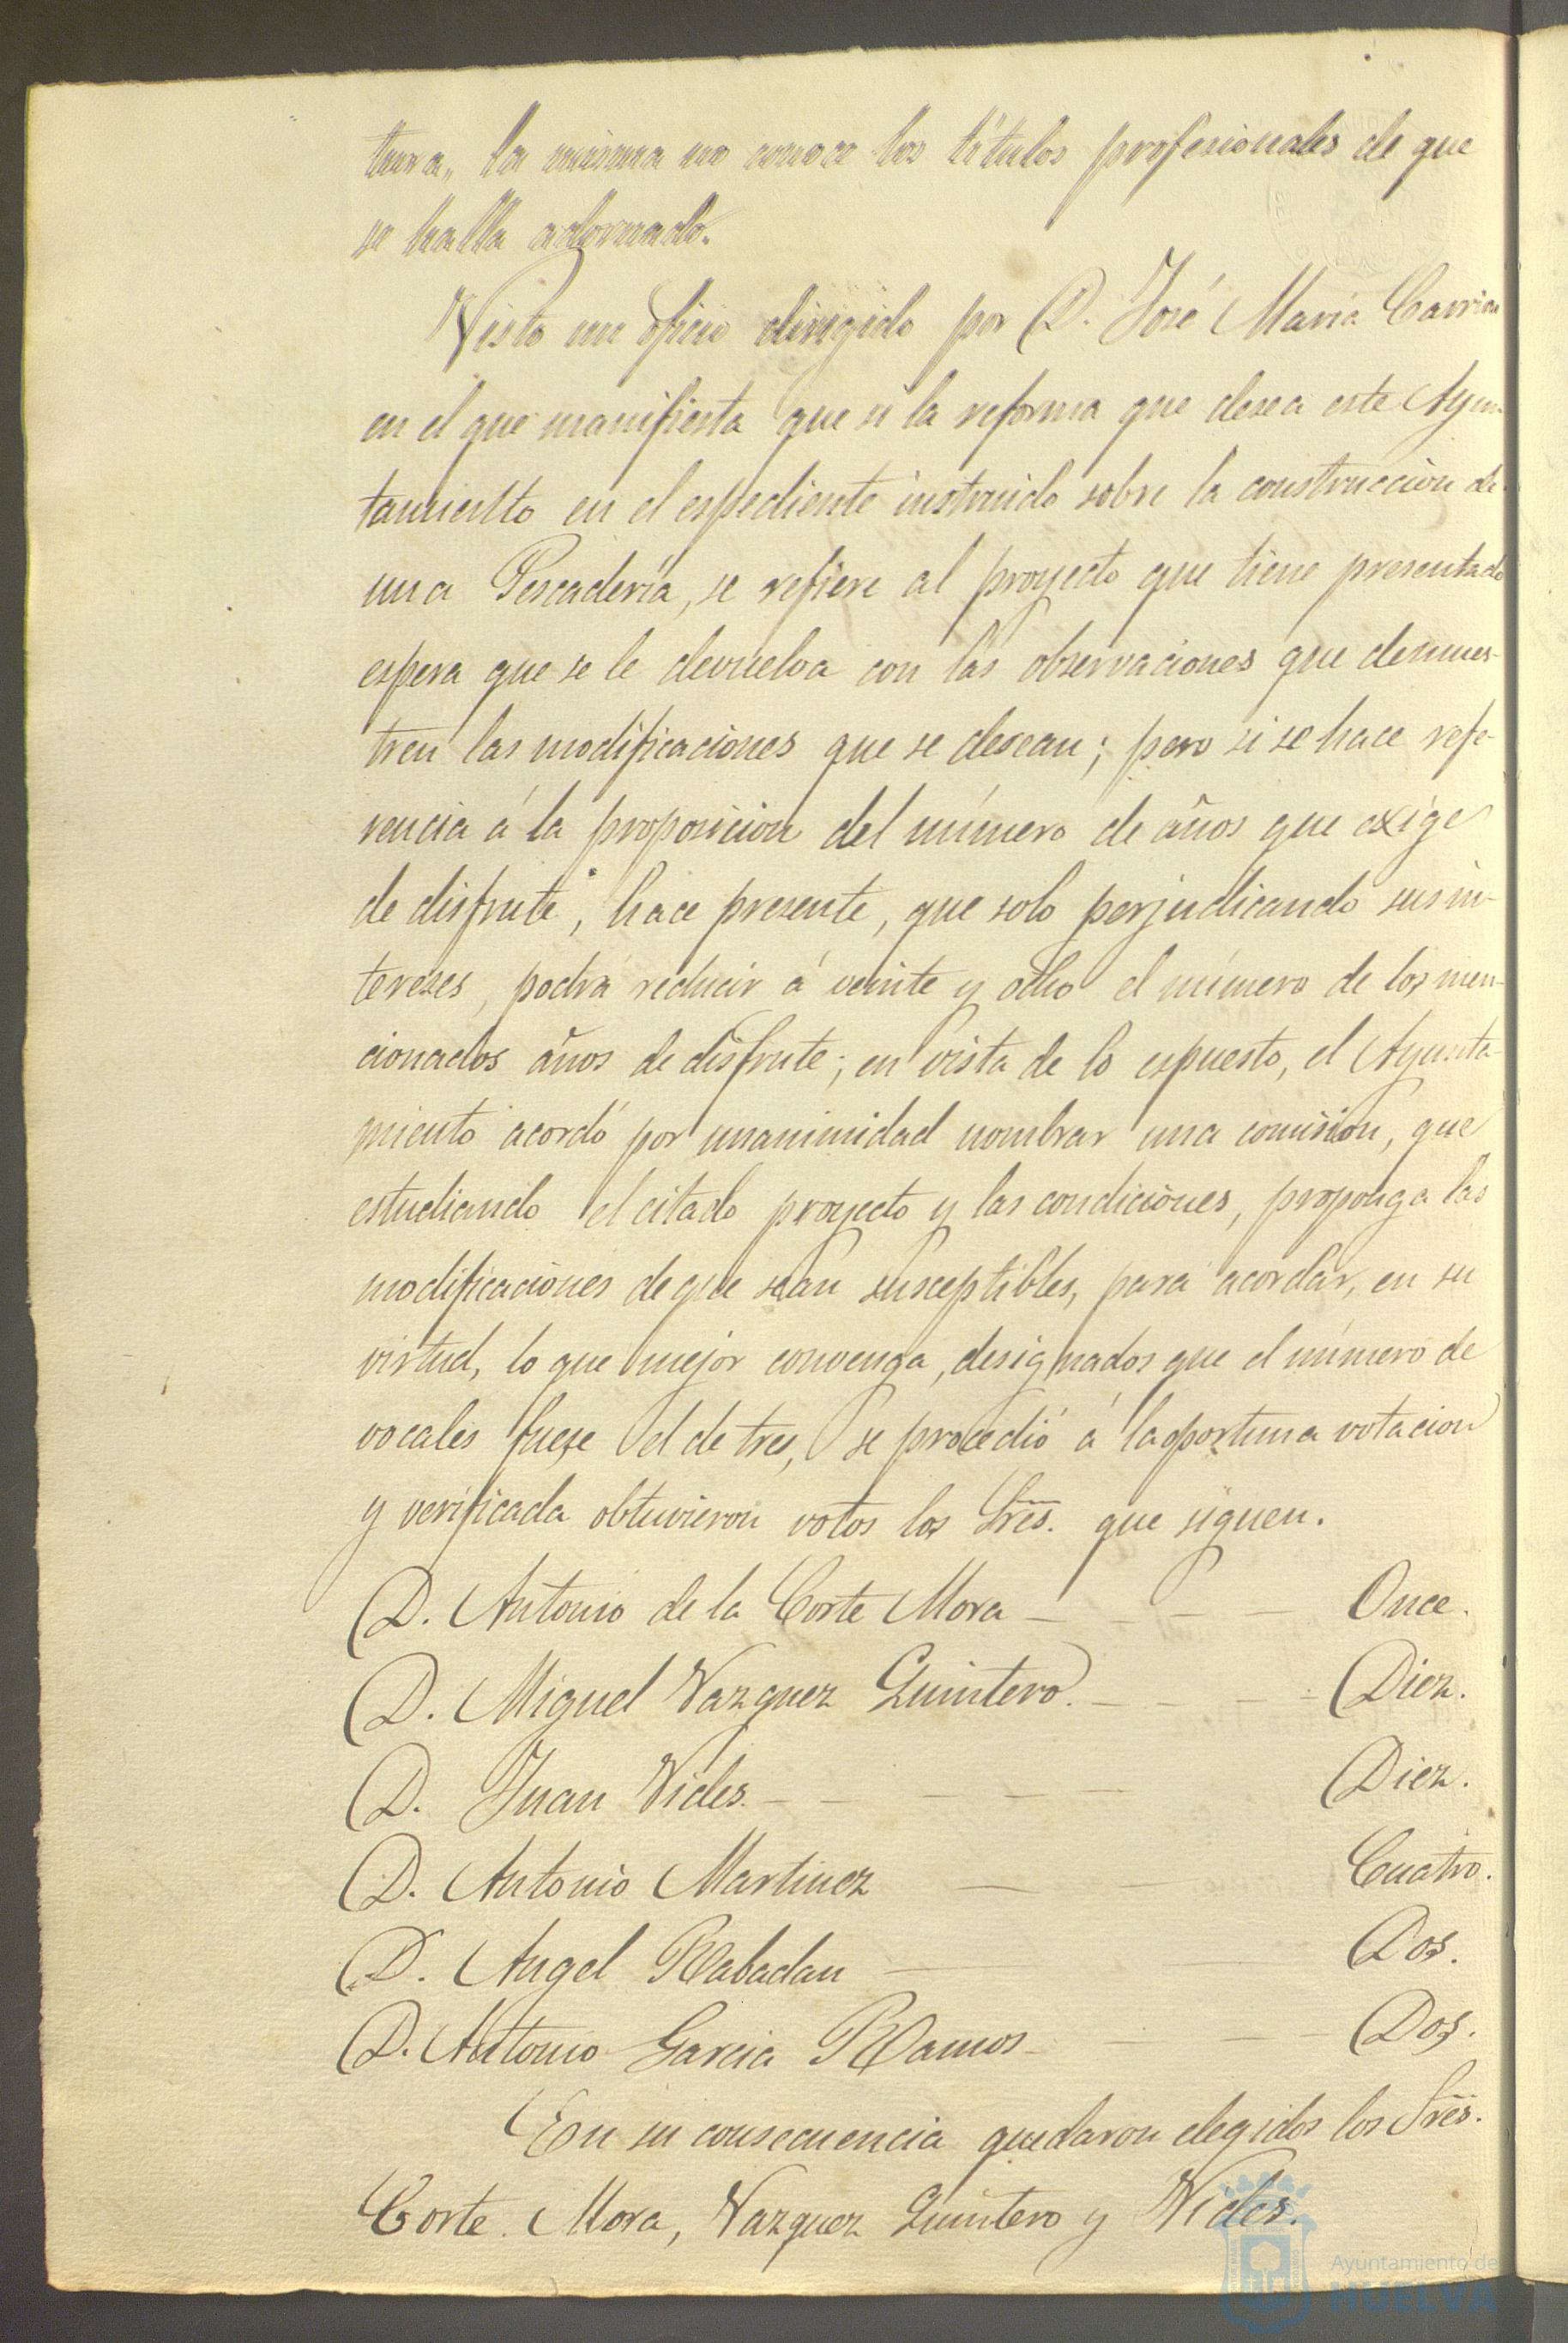 tura, la misma no conoce los títulos profesionales de que
se halla adornado.
Visto un oficio dirigido por D. José María Carrion
en el que manifiesta que si la reforma que desea este Ayun-
tamiento en el espediente instruido sobre la construccion de
una Pescadería, se refiere al proyecto que tiene presentado
espera que se le devuelva con las observaciones que demues-
tren las modificaciones que se desean; pero si se hace refe-
rencia á la proposicion del número de años que exige
de disfrute, hace presente, que solo perjudicando sus in-
tereses, podrá reducir á veinte y ocho el número de los men-
cionados años de disfrute; en vista de lo espuesto, el Ayunta-
miento acordó por unanimidad nombrar una comision, que
estudiando el citado proyecto y las condiciones, proponga las
modificaciones de que sean susceptibles, para acordar, en su
virtud, lo que mejor convenga, designados que el número de
vocales fuese el de tres, se procedió á la oportuna votacion
y verificada obtuvieron votos los Sres. que siguen.
D. Antonio de la Corte Mora — — — — Once.
D. Miguel Vazquez Quintero. — — — — Diez.
D. Juan Vides. — — — — Diez.
D. Antonio Martinez — — Cuatro.
D. Angel Rabadan — Dos.
D. Antonio Garcia Ramos — — — Dos.
En su consecuencia quedaron elegidos los Sres.
Corte Mora, Vazquez Quintero y Vides.
Ayuntamiento de
HUELVA